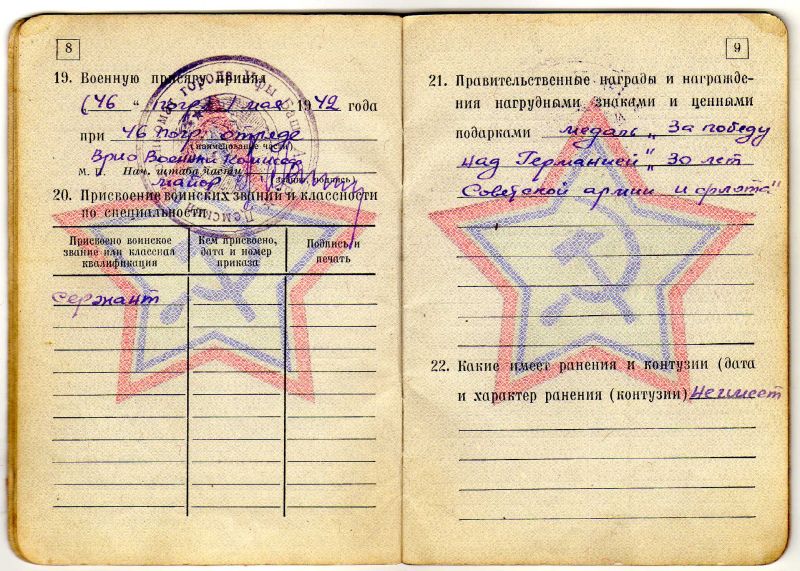 8
19. Военную присягу принял
(46 " погр. 1 мая 1942 года
при 46 погр. отряде
(наименование части)
Врио Военный Комиссар
М. П. Нач. штаба части
майор (звание, подпись)
20. Присвоение воинских званий и классности
по специальности
Присвоено воинское звание или классная квалификация
Кем присвоено, дата и номер приказа
Подпись и печать
сержант
9
21. Правительственные награды и награжде-
ния нагрудными знаками и ценными
подарками медаль „За победу
над Германией„ 30 лет
Советской армии и флота"
22. Какие имеет ранения и контузии (дата
и характер ранения (контузии) Не имеет